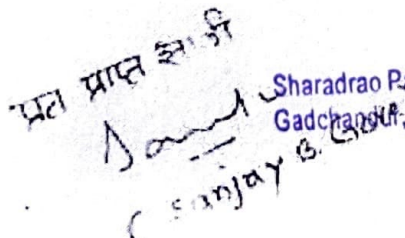 प्रत प्राप्त झाली
Sharadrao P
Gadchandur
Sanjay B.